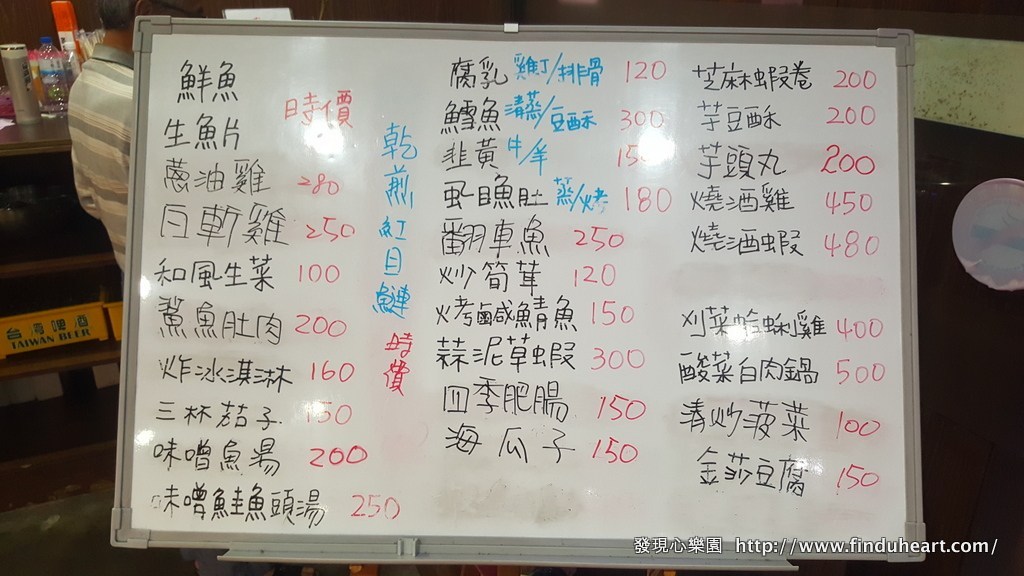 鮮魚
時價
生魚片
蔥油雞 280
白斬雞 250
和風生菜 100
鯊魚肚肉 200
炸冰淇淋 160
三杯茄子 150
味噌魚湯 200
味噌鮭魚頭湯 250
乾煎紅目鰱 時價
腐乳 雞丁/排骨 120
鱈魚 清蒸/豆酥 300
韭黃 牛/羊 15
虱目魚肚 蒸/烤 180
翻車魚 250
炒筍茸 120
烤鹹鯖魚 150
蒜泥草蝦 300
四季肥腸 150
海瓜子 150
芝麻蝦卷 200
芋豆酥 200
芋頭丸 200
燒酒雞 450
燒酒蝦 480
刈菜蛤蜊雞 400
酸菜白肉鍋 500
清炒菠菜 100
金莎豆腐 150
台灣啤酒
TAIWAN BEER
發現心樂園 http://www.finduheart.com/